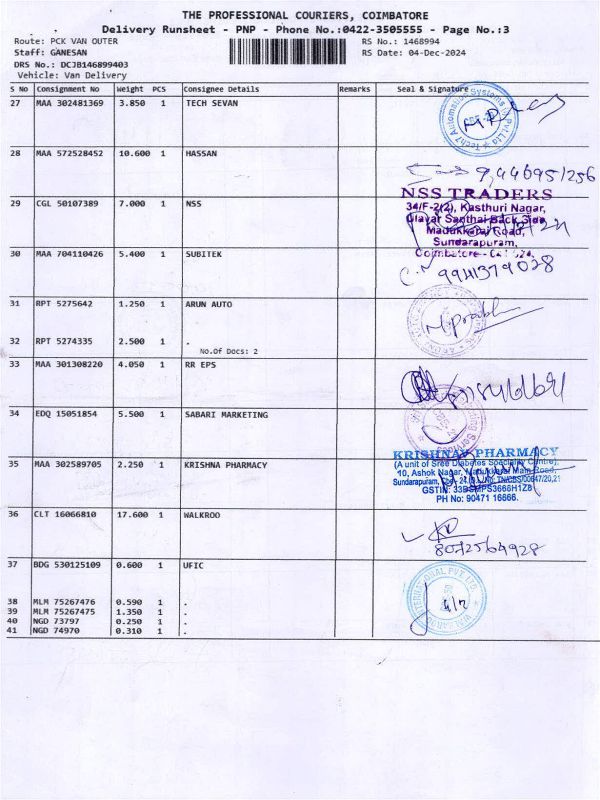 THE PROFESSIONAL COURIERS, COIMBATORE
Delivery Runsheet - PNP - Phone No.:0422-3505555 - Page No.:3
Route: PCK VAN OUTER RS No.: 1468994
Staff: GANESAN RS Date: 04-Dec-2024
DRS No.: DCJB146899403
Vehicle: Van Delivery
S No Consignment No Weight PCS Consignee Details Remarks Seal & Signature
27 MAA 302481369 3.850 1 TECH SEVAN
28 MAA 572528452 10.600 1 HASSAN
29 CGL 50107389 7.000 1 NSS
NSS TRADERS
34/F-2(2), Kasthuri Nagar,
Santhai Back Side,
Madukkarai Road,
Sundarapuram,
Coimbatore
30 MAA 704110426 5.400 1 SUBITEK
9941379028
31 RPT 5275642 1.250 1 ARUN AUTO
32 RPT 5274335 2.500 1 .
No.Of Docs: 2
33 MAA 301308220 4.050 1 RR EPS
34 EDQ 15051854 5.500 1 SABARI MARKETING
35 MAA 302589705 2.250 1 KRISHNA PHARMACY
KRISHNAV PHARMACY
(A unit of Sree Diabetes Speciality Centre),
10, Ashok Nagar, Madukkarai Main Road,
Sundarapuram,
PH No: 90471 16666.
36 CLT 16066810 17.600 1 WALKROO
8072564928
37 BDG 530125109 0.600 1 UFIC
38 MLM 75267476 0.590 1 .
39 MLM 75267475 1.350 1 .
40 NGD 73797 0.250 1 .
41 NGD 74970 0.310 1 .